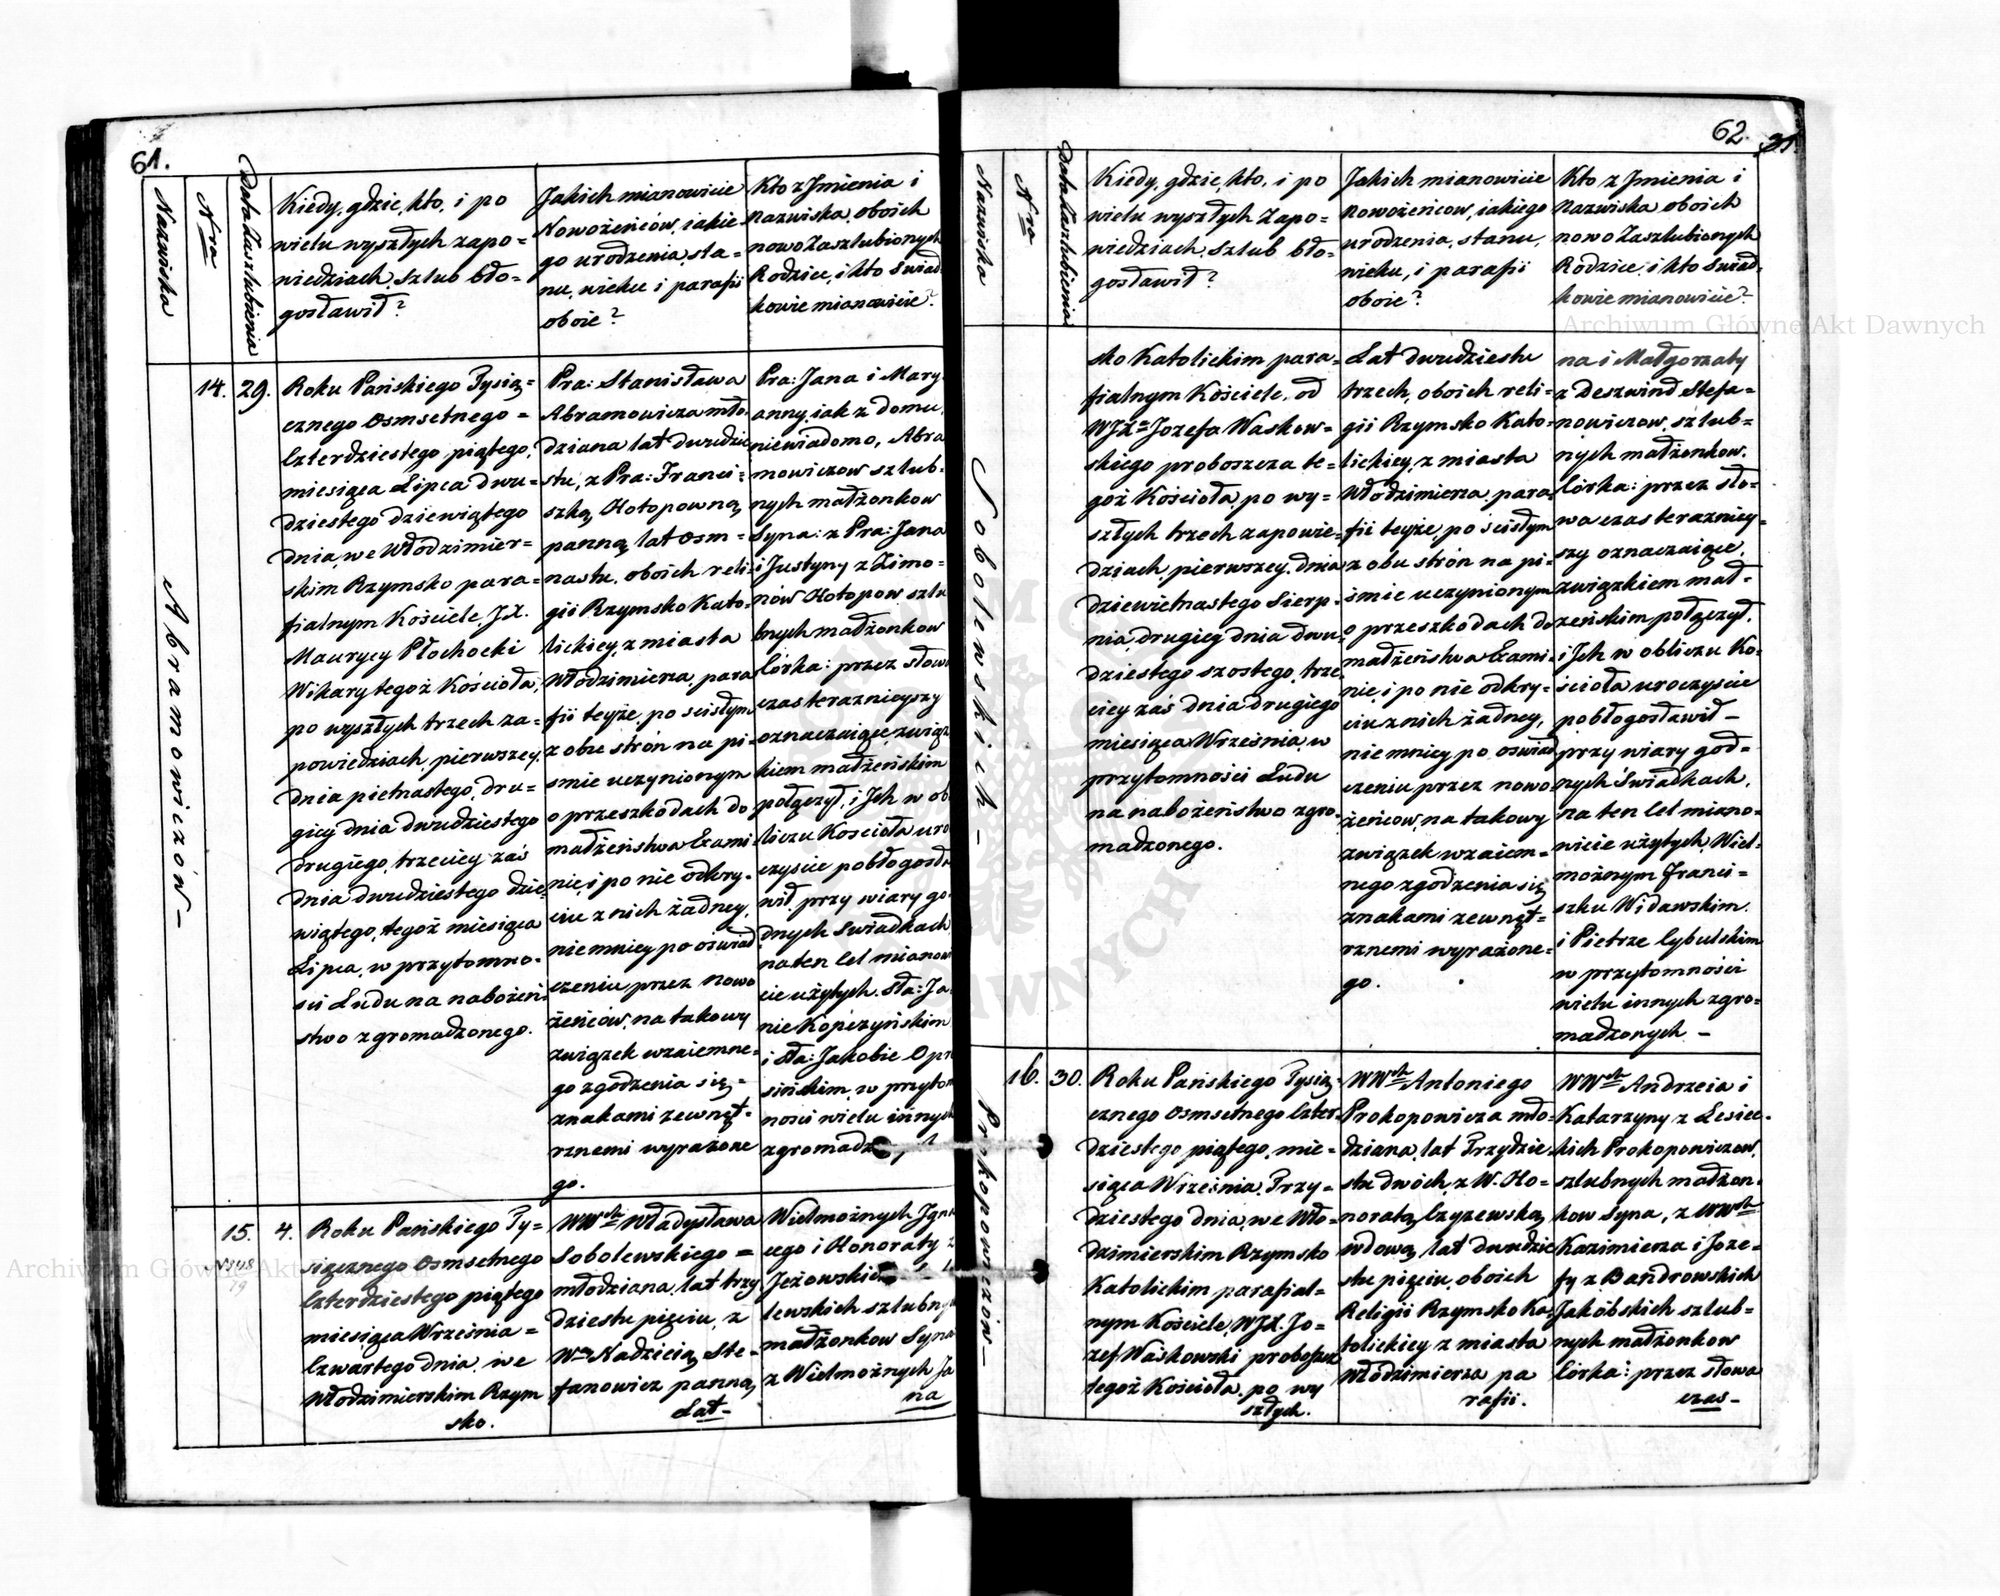 61.
Nazwiska
Nra
Data Zaszlubienia
Kiedy, gdzie, kto, i po
wielu wyszłych zapo=
wiedziach, szlub bło=
gosławił?
Jakich mianowicie
Nowożeńców, iakie=
go urodzenia, sta=
nu, wieku i parafii
oboie?
Kto z Jmienia i
nazwiska oboich
nowo Zaszlubionych
Rodzice, i kto świad=
kowie mianowicie?
Abramowiczów –
14.
29.
Roku Pańskiego Tysią=
cznego osmsetnego =
Czterdziestego piątego,
miesiąca Lipca dwu=
dziestego dziewiątego
dnia, we Włodzimier=
skim Rzymsko para=
fialnym Kościele, JX.
Maurycy Płochocki
Wikary tegoż Kościoła,
po wyszłych trzech za=
powiedziach, pierwszey
dnia pietnastego, dru=
giey dnia dwudziestego
drugiego, trzeciey zaś
dnia dwudziestego dzie=
wiątego, tegoż miesiąca
Lipca, w przytomno=
ści Ludu na nabożeń
stwo zgromadzonego.
Pra: Stanisława
Abramowicza mło.
dziana lat dwudzie
stu, z Pra: Franci=
szką Hotopowną
panną, lat osm=
nastu, oboich reli=
gii Rzymsko Kato=
lickiey, z miasta
Włodzimierza, para
fii teyże, po scisłym
z obu strón na pi=
smie uczynionym
o przeszkodach do
małżeństwa Exami=
nie, i po nie odkry=
ciu z nich żadney,
niemniey po oświad
czeniu przez nowo
żeńców, na takowy
związek wzaiemne=
go zgodzenia się =
znakami zewnęt=
rznemi wyrażone
go.
Pra: Jana i Mary
anny, iak z domu,
niewiadomo, Abra
mowiczow szlub=
nych małżonkow
Syna: z Pra: Jana
i Justyny z Zimo=
nów Hotopow szlu
bnych małżonkow
Córka: przez słowa
czas teraznieyszy
oznaczaiące, związ
kiem małżeńskim
połączył, i Jch w ob
liczu Koscioła uro
czyscie pobłogosła
wił, przy wiary go=
dnych Swiadkach
na ten cel mianow
cie użytych. Sła: Ja=
nie Kopczyńskim
i Sła: Jakobie Opa
sińskim, w przytom
nosci wielu innych
zgromadz
15.
N348
79
4.
Roku Pańskiego Ty=
siącznego Osmsetnego
Czterdziestego piątego
miesiąca Września =
Czwartego dnia, we
Włodzimierskim Rzym
sko.
WW Władysława
Sobolewskiego =
młodziana, lat trzy
dziestu pięciu, z
W Nadzieią Ste=
fanowicz panną
Lat –
Wielmożnych Igna
cego i Honoraty z
Jeżowskich
lewskich szlubnych
małżonkow Syna
z Wielmożnych Ja
na
62.
31.
Nazwiska
Nra
Data Zaszlubienia
Kiedy, gdzie, kto, i po
wielu wyszłych Zapo=
wiedziach, szlub bło=
gosławił?
Jakich mianowicie
nowożeńcow, iakiego
urodzenia, stanu,
wieku, i parafii
oboie?
Kto z Jmienia i
nazwiska oboich
nowo Zaszlubionych
Rodzice, i kto świad=
kowie mianowicie?
Sobolewskich –
sko Katolickim para=
fialnym Kościele, od
WJXa Jozefa Waskow=
skiego proboszcza te=
goż Kościoła, po wy=
szłych trzech zapowie=
dziach, pierwszey dnia
dziewietnastego Sierp=
nia, drugiey dnia dwu=
dziestego szostego, trze
ciey zaś dnia drugiego
miesiąca Września, w
przytomności Ludu
na nabożeństwo zgro=
madzonego.
Lat dwudziestu
trzech, oboich reli=
gii Rzymsko Kato=
lickiey, z miasta
Włodzimierza, para=
fii teyże, po scisłym
z obu strón na pi=
śmie uczynionym
o przeszkodach do
małżeństwa Exami=
nie, i po nie odkry=
ciu z nich żadney,
niemniey po oświad
czeniu przez nowo
żeńcow, na takowy
związek wzaiem=
nego zgodzenia się
znakami zewnęt=
rznemi wyrażone=
go.
na i Małgorzaty
z Deszwind Stefa=
nowiczow, szlub=
nych małżonkow.
Córka: przez sło=
wa czas teraźniey=
szy oznaczaiące,
związkiem mał=
żeńskim połączył,
i Jch w obliczu Ko=
ścioła uroczyscie
pobłogosławił –
przy wiary god=
nych Świadkach,
na ten cel miano=
wicie użytych, Wiel=
możnym Franci=
szku Widawskim
i Pietrze Cybulskim
w przytomności
wielu innych zgro=
madzonych –
Prokopowiczów –
16.
30.
Roku Pańskiego Tysią=
cznego Osmsetnego Czter=
dziestego piątego, mie=
siąca Września, Trzy=
dziestego dnia, we Wło=
dzimierskim Rzymsko
Katolickim parafial=
nym Kościele, WJX. Jo=
zef Waskowski proboszcz
tegoż Kościoła, po wy
szłych.
WW Antoniego
Prokopowicza mło=
dziana, lat Trzydzie
stu dwóch, z W. Ho=
noratą Czyzewską
wdową, lat dwudzie
stu pięciu, oboich
Religii Rzymsko Ka=
tolickiey z miasta
Włodzimierza pa
rafii.
WW Andrzeia i
Katarzyny z Lesiec=
kich Prokopowiczow,
szlubnych małżon=
kow Syna, z WW
Kazimierza i Joze=
fy z Bandrowskich
Jakóbskich szlub=
nych małżonkow
Córka: przez słowa
czas –
Archiwum Główne Akt Dawnych
Archiwum Główne Akt Dawnych